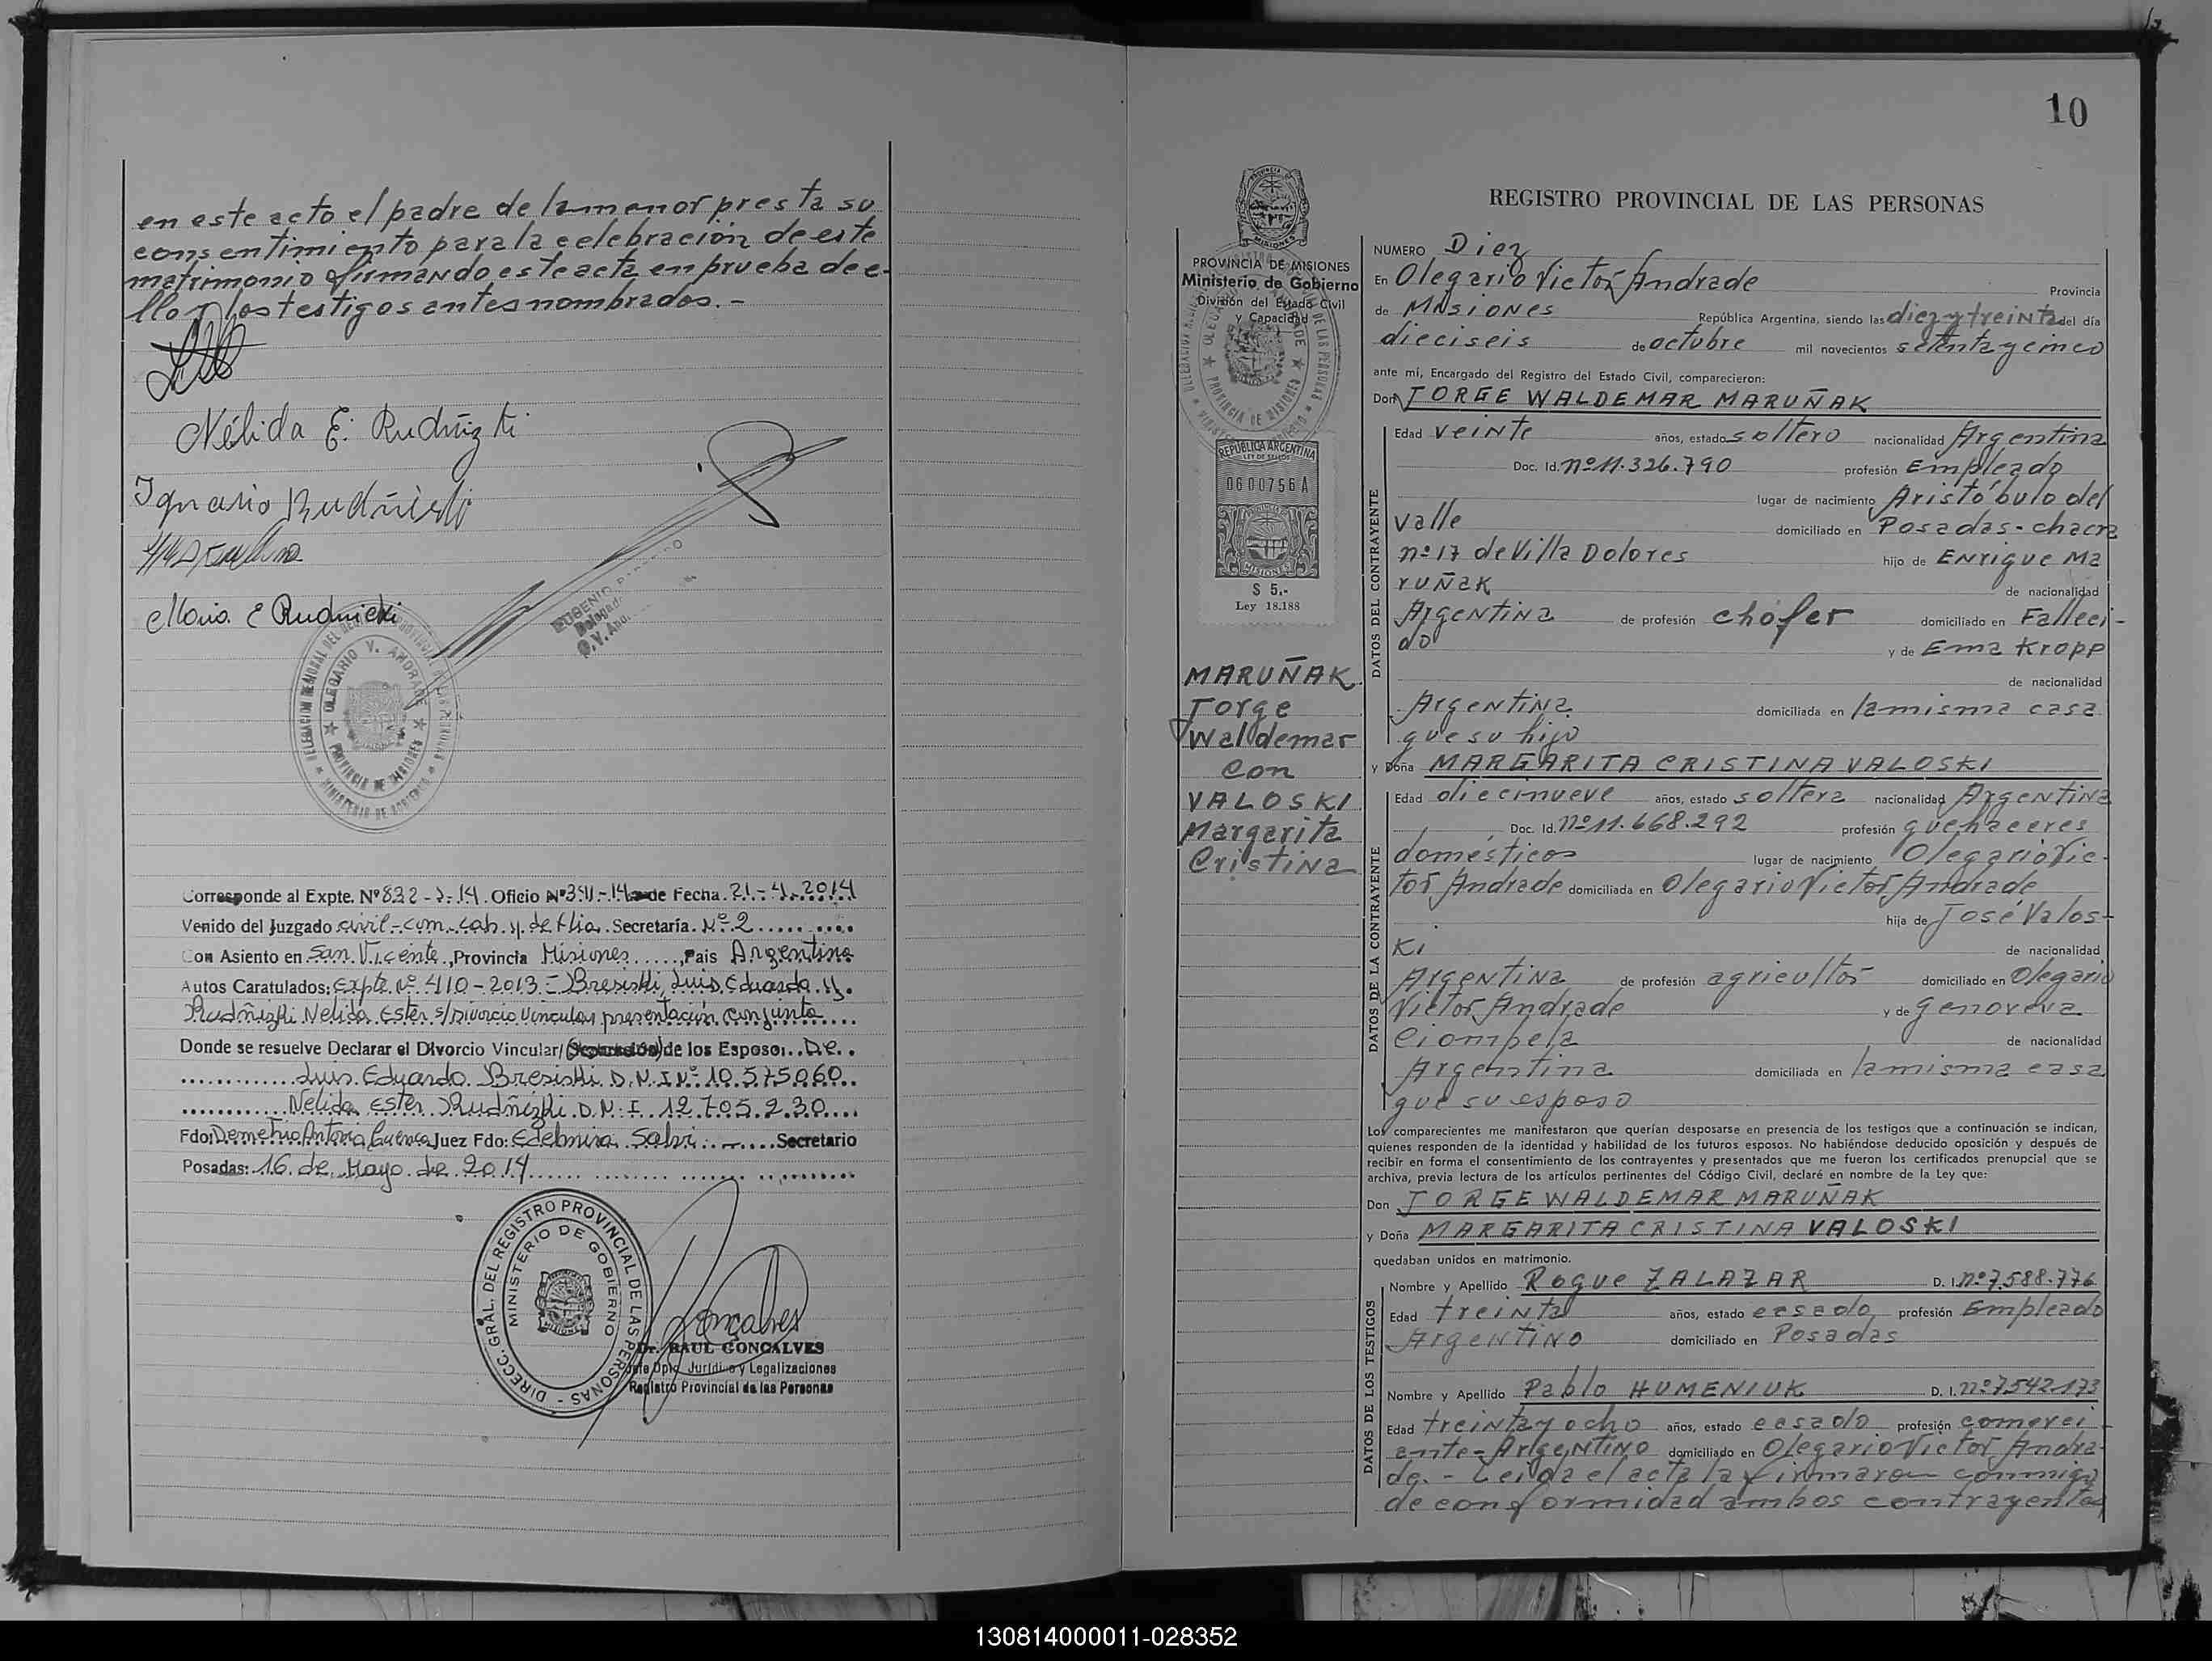 en este acto el padre de la menor presta su
consentimiento para la celebración de este
matrimonio firmando este acta en prueba de e-
llo y los testigos antes nombrados.-
Nélida E. Rudñizki
Ignacio Rudñiski
Maria E Rudnicki
EUGENIO
Delegado
O. V. And.
DELEGACION REGIONAL DEL REGISTRO PROVINCIAL DE LAS PERSONAS
OLEGARIO V. ANDRADE
PROVINCIA DE MISIONES
MINISTERIO DE GOBIERNO
Corresponde al Expte. Nº 832-J-14. Oficio Nº 350-14 de Fecha. 21-4-2014
Venido del Juzgado civil-com-lab. y de flia. Secretaría. Nº 2
Con Asiento en San Vicente, Provincia Misiones, Pais Argentina
Autos Caratulados: Expte Nº 410-2013- Bresiski, Luis Eduardo y.
Rudñizki Nelida Ester s/ Divorcio Vincular presentación conjunta
Donde se resuelve Declarar el Divorcio Vincular/ (Separación) de los Esposo: De
Luis Eduardo Bresiski D.N.I Nº 10.575.060
Nelida Ester Rudñizki. D.N.I. 12.705.230
Fdo: Demetrio Antonio Cuenca Juez Fdo: Edelmira Salvi Secretario
Posadas: 16 de Mayo de 2014
DIRECC. GRAL. DEL REGISTRO PROVINCIAL DE LAS PERSONAS
MINISTERIO DE GOBIERNO
Gonçalves
Dr. RAUL GONCALVES
Jefe Dpto. Jurídico y Legalizaciones
Registro Provincial de las Personas
10
REGISTRO PROVINCIAL DE LAS PERSONAS
PROVINCIA DE MISIONES
Ministerio de Gobierno
División del Estado Civil
y Capacidad
REPUBLICA ARGENTINA
LEY DE SELLOS
0600756 A
MISIONES
$ 5.-
Ley 18.188
MARUÑAK
Jorge
Waldemar
con
VALOSKI
Margarita
Cristina
NUMERO Diez
En Olegario Victor Andrade Provincia
de Misiones República Argentina, siendo las diez y treinta del día
dieciseis de octubre mil novecientos setenta y cinco
ante mí, Encargado del Registro del Estado Civil, comparecieron:
Don JORGE WALDEMAR MARUÑAK
DATOS DEL CONTRAYENTE
Edad veinte años, estado soltero nacionalidad Argentina
Doc. Id. nº 11.326.790 profesión Empleado
lugar de nacimiento Aristóbulo del
valle domiciliado en Posadas-chacra
nº 17 de Villa Dolores hijo de Enrique Ma
ruñak de nacionalidad
Argentina de profesión chofer domiciliado en Falleci-
do y de Ema Kropp
de nacionalidad
Argentina domiciliada en la misma casa
que su hijo
y Doña MARGARITA CRISTINA VALOSKI
DATOS DE LA CONTRAYENTE
Edad diecinueve años, estado soltera nacionalidad Argentina
Doc. Id. nº 11.668.292 profesión quehaceres
domésticos lugar de nacimiento Olegario Vic-
tor Andrade domiciliada en Olegario Victor Andrade
hija de José Valos-
ki de nacionalidad
Argentina de profesión agricultor domiciliado en Olegario
Victor Andrade y de genoveva
Ciompela de nacionalidad
Argentina domiciliada en la misma casa
que su esposo
Los comparecientes me manifestaron que querían desposarse en presencia de los testigos que a continuación se indican,
quienes responden de la identidad y habilidad de los futuros esposos. No habiéndose deducido oposición y después de
recibir en forma el consentimiento de los contrayentes y presentados que me fueron los certificados prenupcial que se
archiva, previa lectura de los artículos pertinentes del Código Civil, declaré en nombre de la Ley que:
Don JORGE WALDEMAR MARUÑAK
y Doña MARGARITA CRISTINA VALOSKI
quedaban unidos en matrimonio.
DATOS DE LOS TESTIGOS
Nombre y Apellido Roque ZALAZAR D. I. nº 7.588.776
Edad treinta años, estado casado profesión Empleado
Argentino domiciliado en Posadas
Nombre y Apellido Pablo HUMENIUK D. I. nº 7.542.173
Edad treinta y ocho años, estado casado profesión comerci-
ante-Argentino domiciliado en Olegario Victor Andra-
de.- Leida el acta la firmaron conmigo
de conformidad ambos contrayentes
130814000011-028352